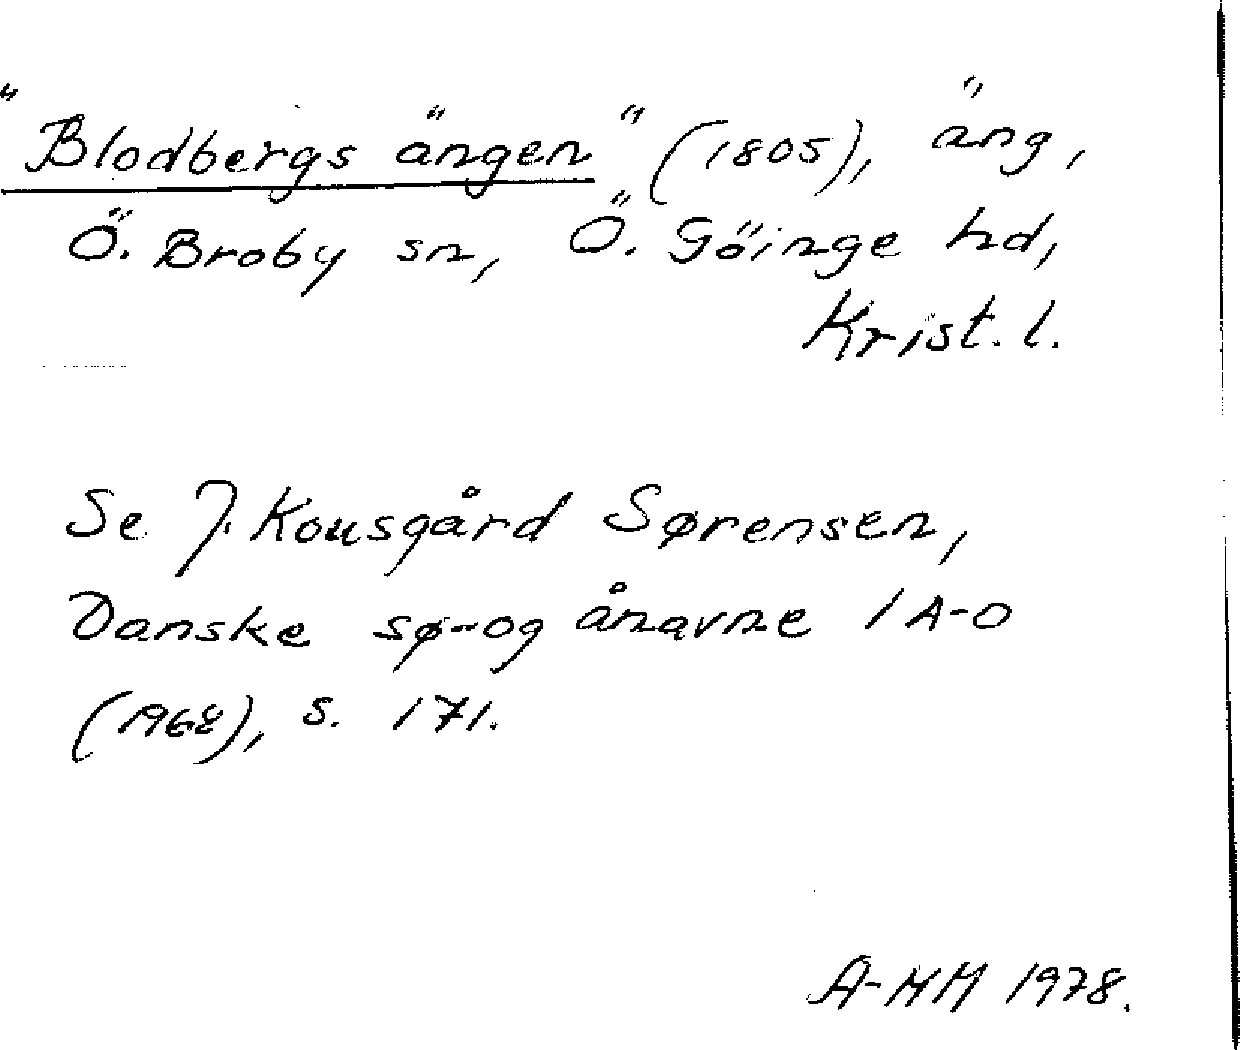 "Blodbergs ängen" (1805), äng,
Ö. Broby sn, Ö. Göinge hd,
Krist. l.
Se J. Kousgård Sørensen,
Danske sø- og ånavne 1 A-O
(1968), s. 171.
A-MM 1978.